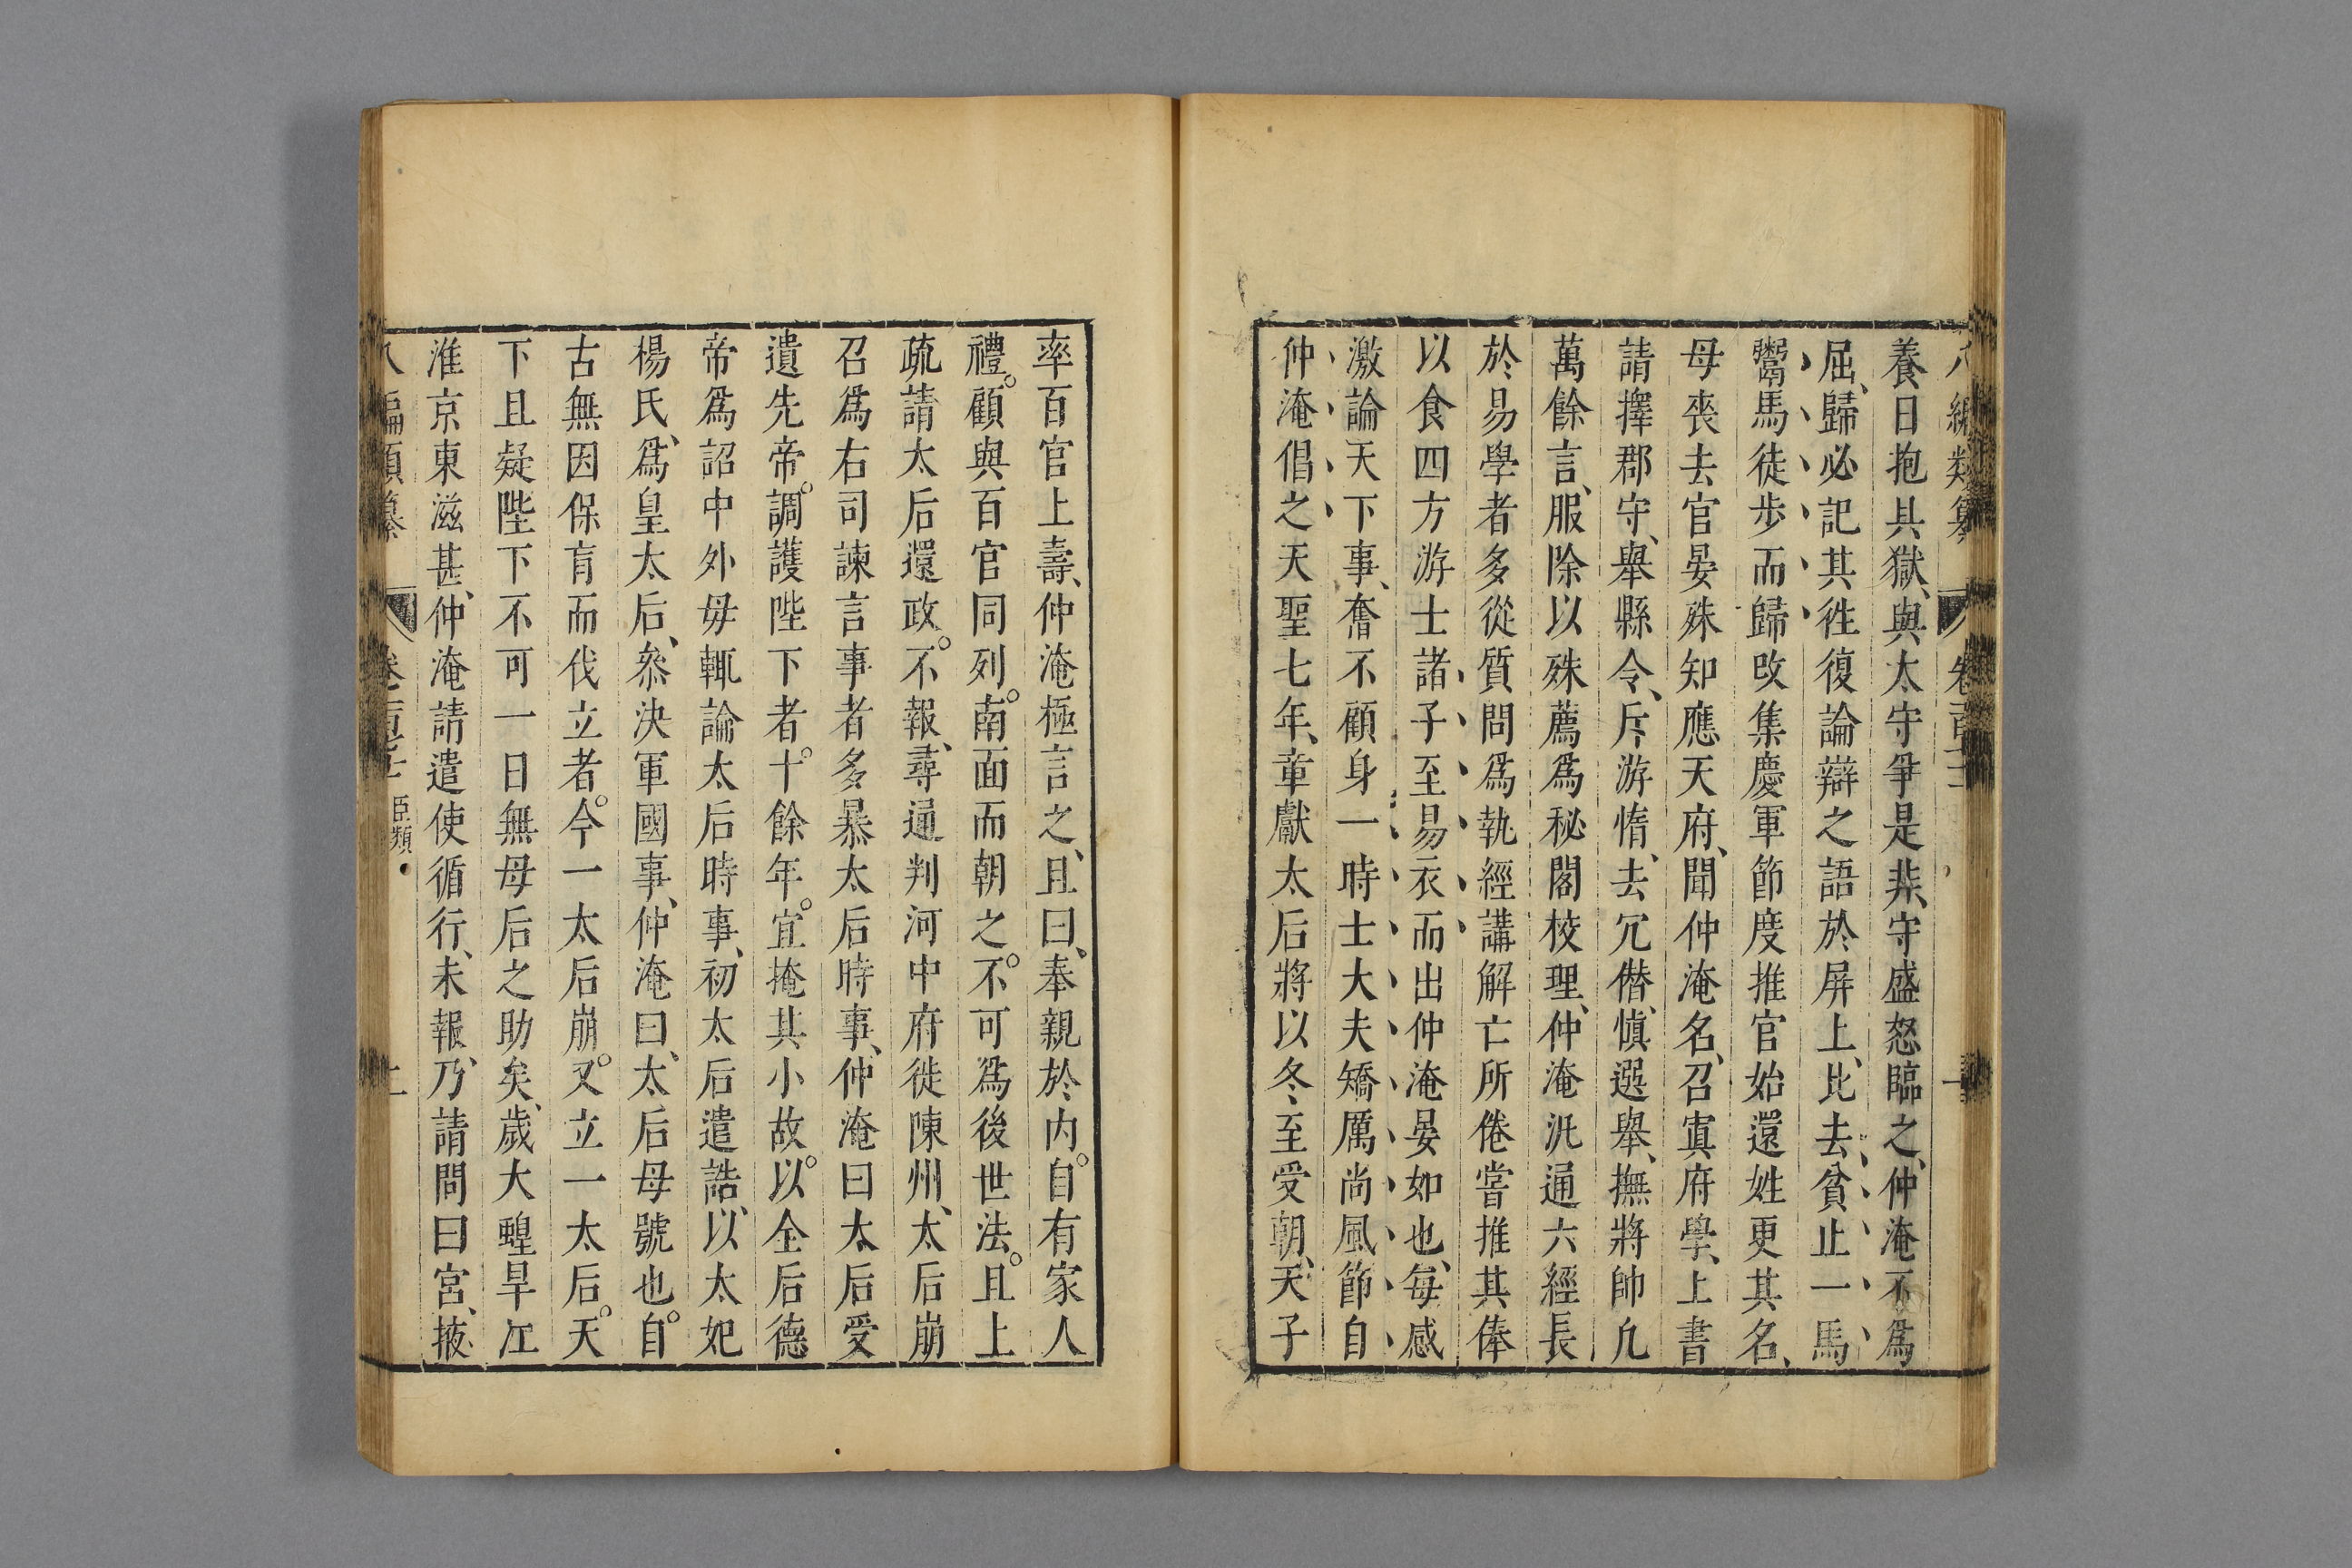 養日抱具獄、與太守爭是非、守盛怒臨之、仲淹不爲
屈、歸必記其徃復論辯之語於屏上、比去、貧止一馬
鬻馬徒步而歸攺集慶軍節度推官始還姓更其名、
母喪去官晏殊知應天府、聞仲淹名、召寘府學、上書
請擇郡守、舉縣令、斥游惰、去冗僭、愼選舉、撫將帥凢
萬餘言、服除以殊薦爲秘閣校理、仲淹汎通六經長
於易學者多從質問爲執經講解亡所倦嘗推其俸
以食四方游士諸子至易衣而出仲淹晏如也、每感
激論天下事、奮不顧身一時士大夫矯厲尚風節自
仲淹倡之天聖七年、章獻太后將以冬至受朝、天子
率百官上壽、仲淹極言之、且曰、奉親於内。自有家人
禮。顧與百官同列。南面而朝之。不可爲後世法。且上
疏請太后還政。不報、尋通判河中府徙陳州、太后崩
召爲右司諫言事者多暴太后時事、仲淹曰太后受
遺先帝。調護陛下者。十餘年。宜掩其小故。以全后德
帝爲詔中外毋輒論太后時事、初太后遺誥、以太妃
楊氏、爲皇太后、叅決軍國事、仲淹曰、太后母號也。自
古無因保育而伐立者。今一太后崩。又立一太后。天
下且疑陛下不可一日無母后之助矣、歲大蝗旱江
淮京東滋甚、仲淹請遣使循行、未報、乃請間曰宮、掖
八編類纂 臣類